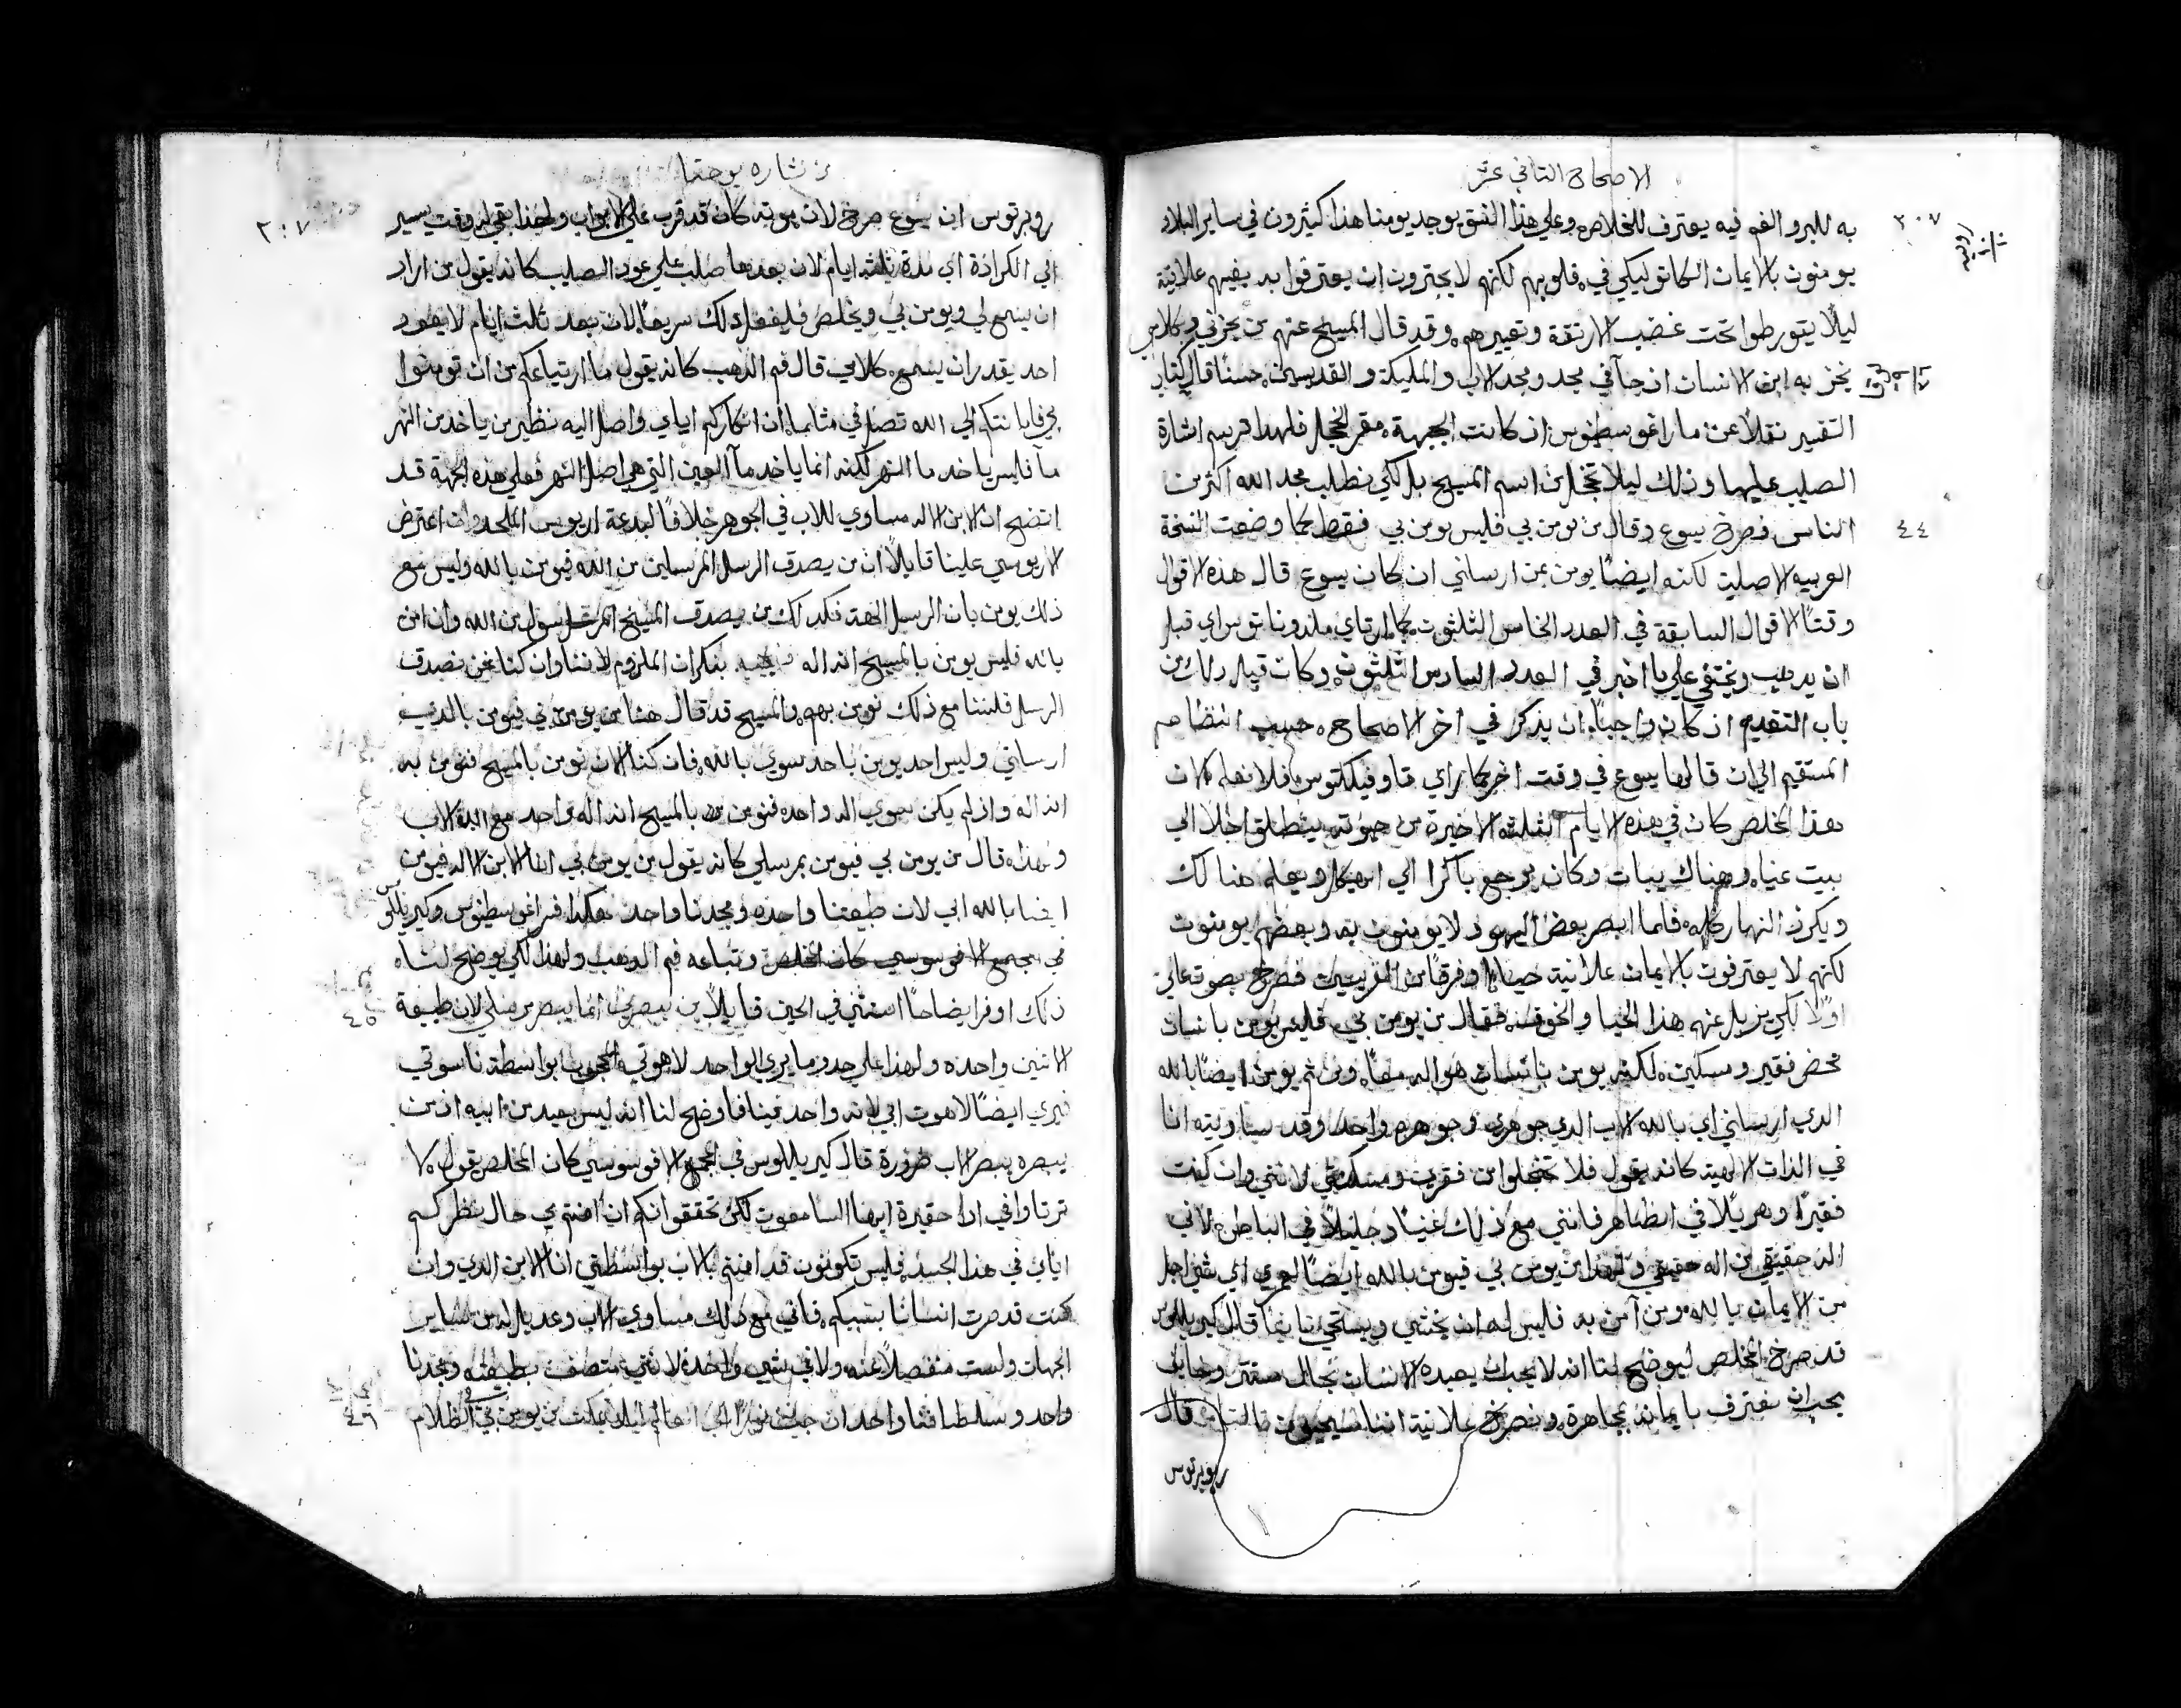 الاصحاح التاني عشر
٢٠٧
به للبر والفم فيه يعترف للخلاص وعلي هذا النسق يوجد يومنا هذا كثيرون في ساير البلاد
يومنون بالايمان الكاتوليكي في قلوبهم لكنهم لا يجترون ان يعترفوا به بفيهم علانية
ليلا يتورطوا تحت غضب الارتقة وتعييرهم وقد قال المسيح عنهم من يخزني وكلامي
يخز به ابن الانسان ان جآ في مجد ومجد الاب والمليكة والقديسين حسنًا قال كتاب
التفسير نقلًا عن ماراغوسطينوس اذ كانت الجبهة مقر الخجل فلهذا ترسم اشارة
الصليب عليها وذلك ليلا تخجل من اسم المسيح بل لكي نطلب مجد الله اكثر من
٤٤
الناس فصرخ يسوع وقال من يومن بي فليس يومن بي فقط كما وضعت النسخة
العربيه الاصلية لكنه ايضًا يومن بمن ارسلني ان كان يسوع قال هذه الاقوال
وقتًا الاقوال السابقة في العدد الخامس الثلثون كما ارتاي ملدوناتوس اي قبل
ان يذهب ويختفي علي ما اخبر في العدد السادس الثلثون وكان قيل ذلك من
باب التقديم اذ كان واجبًا ان يذكر في اخر الاصحاح حسب انتظام
المستقيم الي ان قالها يسوع في وقت اخر كما راي فلا نعلم لان
هذا المخلص كان في هذه الايام الثلثة الاخيرة من حيوته ينطلق اجلًا الي
بيت عنيا وهناك يبات وكان يرجع باكرا الي الهيكل ويعلم هنالك
ويكرز النهار كله فلما ابصر بعض اليهود لا يومنون به وبعضهم يومنون
لكنهم لا يعترفون بالايمان علانية حياءً وفرقًا من الفريسيين فصرخ بصوت عالي
اولًا لكي يزيل عنهم هذا الحيا والخوف فقال من يومن بي فليس يومن بانسان
محض فقير ومسكين لكنه يومن بانسان هو اله معًا ومن ثم يومن ايضًا بالله
الذي ارسلني اي بالله الاب الذي جوهري وجوهره واحد وقد ساويته انا
في الذات الالهية كانه يقول فلا تخجلوا من فقري ومسكنتي لانني وان كنت
فقيرًا وهزيلًا في الظاهر فانني مع ذلك غنيًا وجليلًا في الباطن لاني
اله حقيقي من اله حقيقي ولهذا من يومن بي فيومن بالله ايضًا لعمري اي شي اجل
من الايمان بالله ومن آمن به فليس له ان يخشي ويستحي قال كيريللوس
قد صرخ المخلص ليوضح لنا انه لا يجب ان يعبده الانسان بحال مستتر
يجب ان نعترف بايمانه مجاهرة ونصرخ علانية اننا مسيحيون قال
روبرتوس
بشاره يوحنا
٢٠٧
روبرتوس ان يسوع صرخ لان موته كان قد قرب علي الابواب ولهذا بقي له وقت يسير
الي الكرازة اي مدة ثلثة ايام لان بعدها صلب علي عود الصليب كانه يقول من اراد
ان يسمع لي ويومن بي ويخلص فليفعل ذلك سريعًا لان بعد ثلث ايام لا يعود
احد يقدر ان يسمع كلامي قال فم الذهب كانه يقول ما ارتياعكم من ان تومنوا
بي فايمانتكم الي الله تصل في مثلما ان انكاركم اياي واصل اليه نظير من ياخد من النهر
مآ فليس ياخد ما النهر لكنه انما ياخد مآ العين التي هي اصل النهر فعلي هذه الجهة قد
اتضح ان الابن الاله مساوي للاب في الجوهر خلافًا لبدعة اريوس الملحد وان اعترض
الاريوسي علينا قايلًا ان من يصدق الرسل المرسلين من الله فيومن بالله وليس مع
ذلك يومن بان الرسل الهة فكذلك من يصدق المسيح المرسل من الله وان امن
بالله فليس يومن بالمسيح انه اله فنجيبه بنكران الملزوم لاننا وان كنا نحن نصدق
الرسل فلسنا مع ذلك نومن بهم والمسيح قد قال هنا من يومن بي فيومن بالذي
ارسلني وليس احد يومن باحد سوي بالله فان كنا الان نومن بالمسيح فنومن به
انه اله واذ لم يكن سوي اله واحد فنومن بالمسيح انه اله واحد مع الله الاب
ولهذا قال من يومن بي فيومن بمرسلي كانه يقول من يومن بي انا الابن الاله فيومن
ايضا بالله ابي لان طبعتنا واحده ومجدنا واحد هكذا فسر اغوسطينوس وكيريللوس
في مجمع الافسوسي كان المخلص وتباعه فم الذهب ولهذا لكي يوضح لنا
٤٥
ذلك اوفر ايضاحًا استثني في الحين قايلًا من يبصرني انما يبصر مرسلي لان طبيعة
الاتنين واحده ولهذا علي حد وما يري الواحد لاهوتي المحجوب بواسطة ناسوتي
فيري ايضًا لاهوت ابي لانه واحد فينا فاوضح لنا انه ليس بعيد من ابيه اذ من
يبصره يبصر الاب ضرورة قال كيريللوس في المجمع الافسوسي كان المخلص يقول لا
ترتاوا في ارا حقيرة ايها السامعون لكن تحققوا انكم ان امنتم بي حال نظركم
اياي في هذا الجسد فليس تكونون قد امنتم بالاب بواسطتي انا الابن الذي وان
كنت قد صرت انسانا بسببكم فاني مع ذلك مساوي الاب وعديله من ساير
الجهات ولست منفصلًا عنه ولا في شي واحد لانني متصف بطبعته ومجدنا
٤٦
واحد وسلطاننا واحد ان جيت نورًا الي العالم ليلا يمكث من يومن بي في الظلام